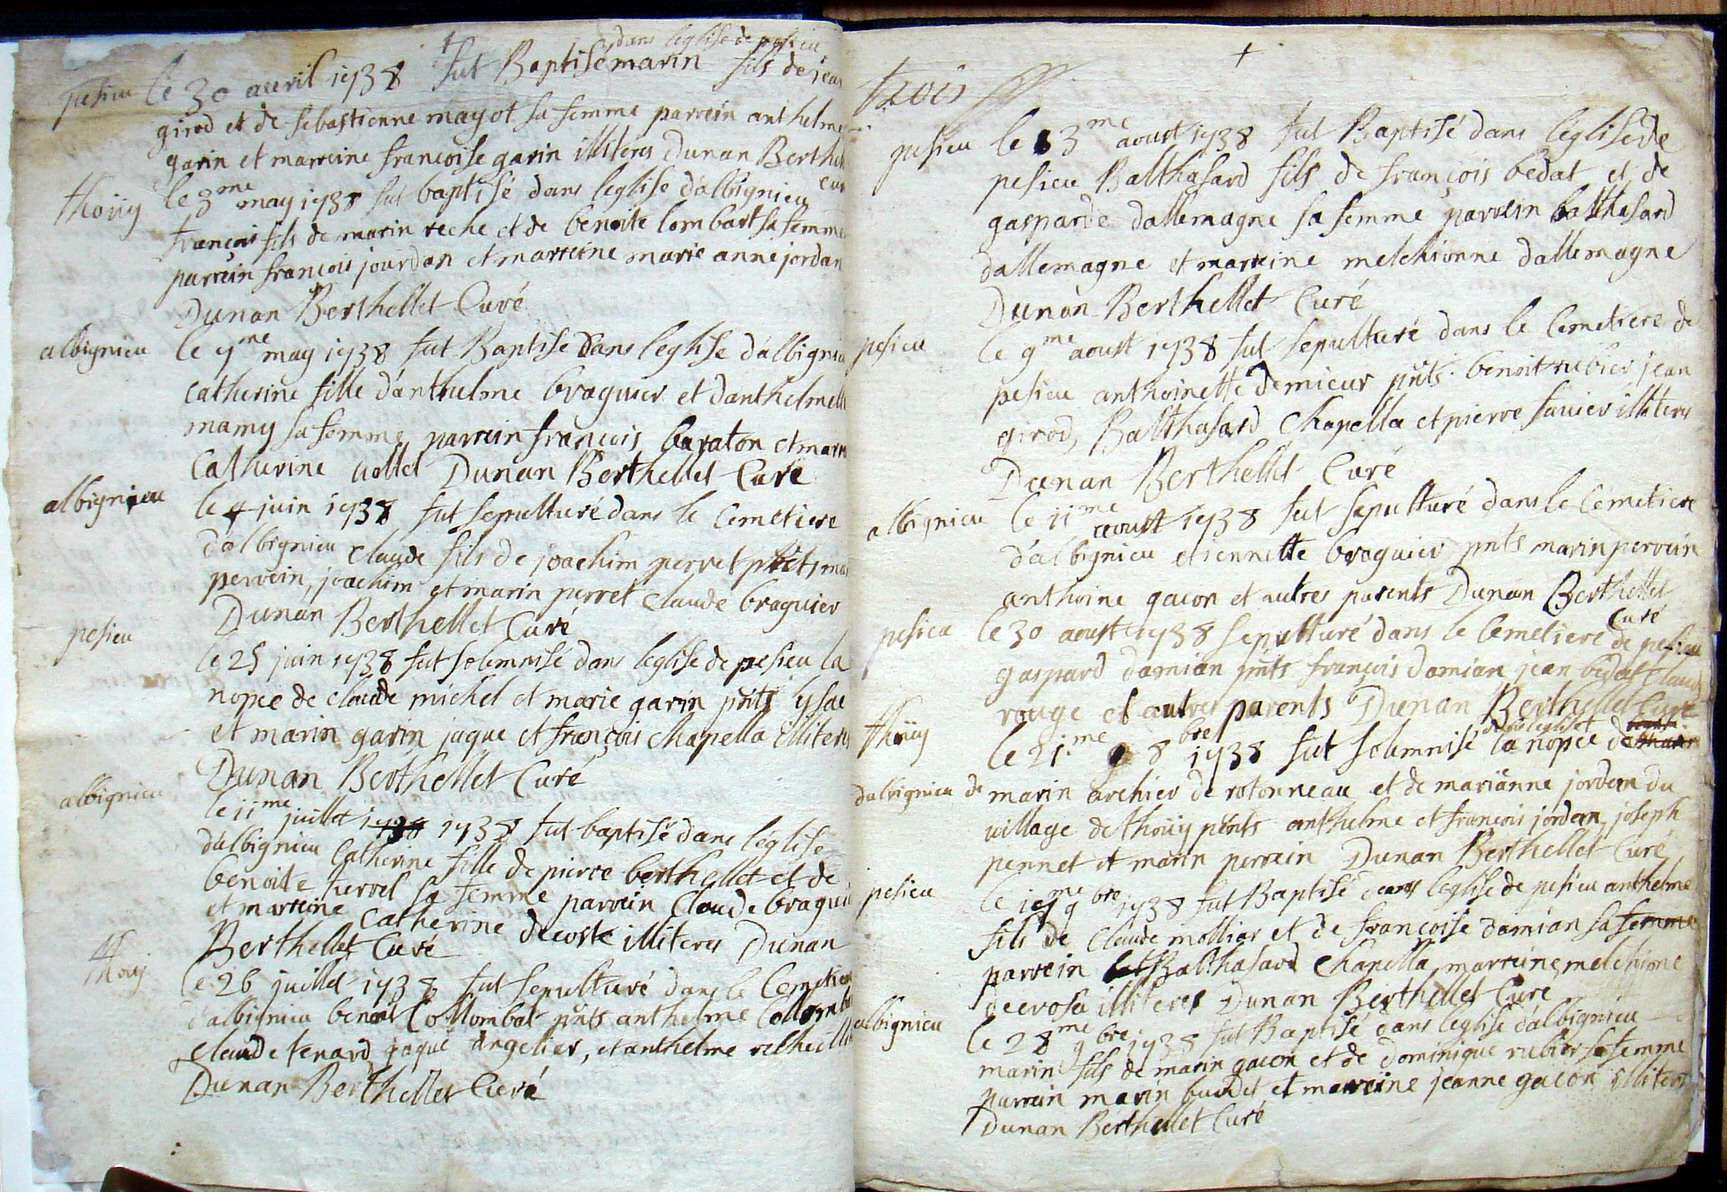 dans leglise de pesieu
pesieu le 30 avril 1738 fut Baptisé marin fils de jean
girod et de sebastienne mayot sa femme parrein anthelme
garin et marreine francoise garin illiteres Dunan Berthellet
curé
thoüy le 3me may 1738 fut baptisé dans leglise dalbignieu
françois fils de marin reche et de benoite lombart sa femme
parrein francois jourdan et marreine marie anne jordan
Dunan Berthellet Curé
albignieu le 9me may 1738 fut Baptise Dans leglise dalbignieu
catherine fille danthelme braguier et danthelmette
mamy sa femme parrein françois baraton et marreine
Catherine vollet Dunan Berthellet Curé
albignieu le 4 juin 1738 fut sepulturé dans le Cemetiere
dalbignieu claude fils de joachim perret pnts
perrein, joachim et marin perret Claude braguier
Dunan Berthellet Curé
pesieu le 25 juin 1738 fut solemnisé dans leglise de pesieu la
nopce de claude michel et marie garin pnts ysaac
et marin garin jaque et françois chapella illiteres
Dunan Berthellet Curé
albignieu le 11me juillet 1738 1738 fut baptisé dans leglise
dalbignieu Catherine fille de pierre berthellet et de
benoite hervel sa femme parrein Claude braguier
et marreine Catherine decoste illiteres Dunan
Berthellet Curé
thoüy le 26 juillet 1738 fut sepulturé dans le Cemetiere
dalbignieu benoit Collombat pnts anthelme Collombat
claude tenard jaque angelier, et anthelme
Dunan Berthellet Curé
trois
pesieu le 3me aoust 1738 fut Baptisé dans leglise de
pesieu Balthasard fils de françois bedat et de
gasparde dallemagne sa femme parrein balthasard
dallemagne et marreine melchionne dallemagne
Dunan Berthellet Curé
pesieu le 9me aoust 1738 fut sepulturé dans le Cemetiere de
pesieu anthoinette demieur pnts benoit rubier jean
girod, Balthasard Chapella et pierre savier illiteres
Dunan Berthellet Curé
albignieu le 11me aoust 1738 fut sepulturé dans le Cemetiere
dalbignieu etiennette braguier pnts marin perrein
anthoine gacon et autres parents Dunan Berthellet
Curé
pesieu le 30 aoust 1738 sepulturé dans le Cemetiere de pesieu
gaspard damian pnts françois damian jean bedat Claude
rouge et autres parents Dunan Berthellet Curé
dans leglise
thoüy le 21.me 8bre 1738 fut solemnisé la nopce
dalbignieu de marin archier de rotonneau et de marianne jordan du
village de thoüy pnts anthelme et francois jordan, joseph
pennet et marin perrein Dunan Berthellet Curé
pesieu le me 9bre 1738 fut Baptisé dans leglise de pesieu anthelme
fils de Claude molliar et de francoise damian sa femme
parrein Balthasard Chapella marreine melchione
decrosa illiteres Dunan Berthellet Curé
albignieu le 28me 9bre 1738 fut Baptisé dans leglise dalbignieu
marin fils de marin gacon et de dominique rubier sa femme
parrein marin et marreine jeanne gacon illiteres
Dunan Berthellet Curé